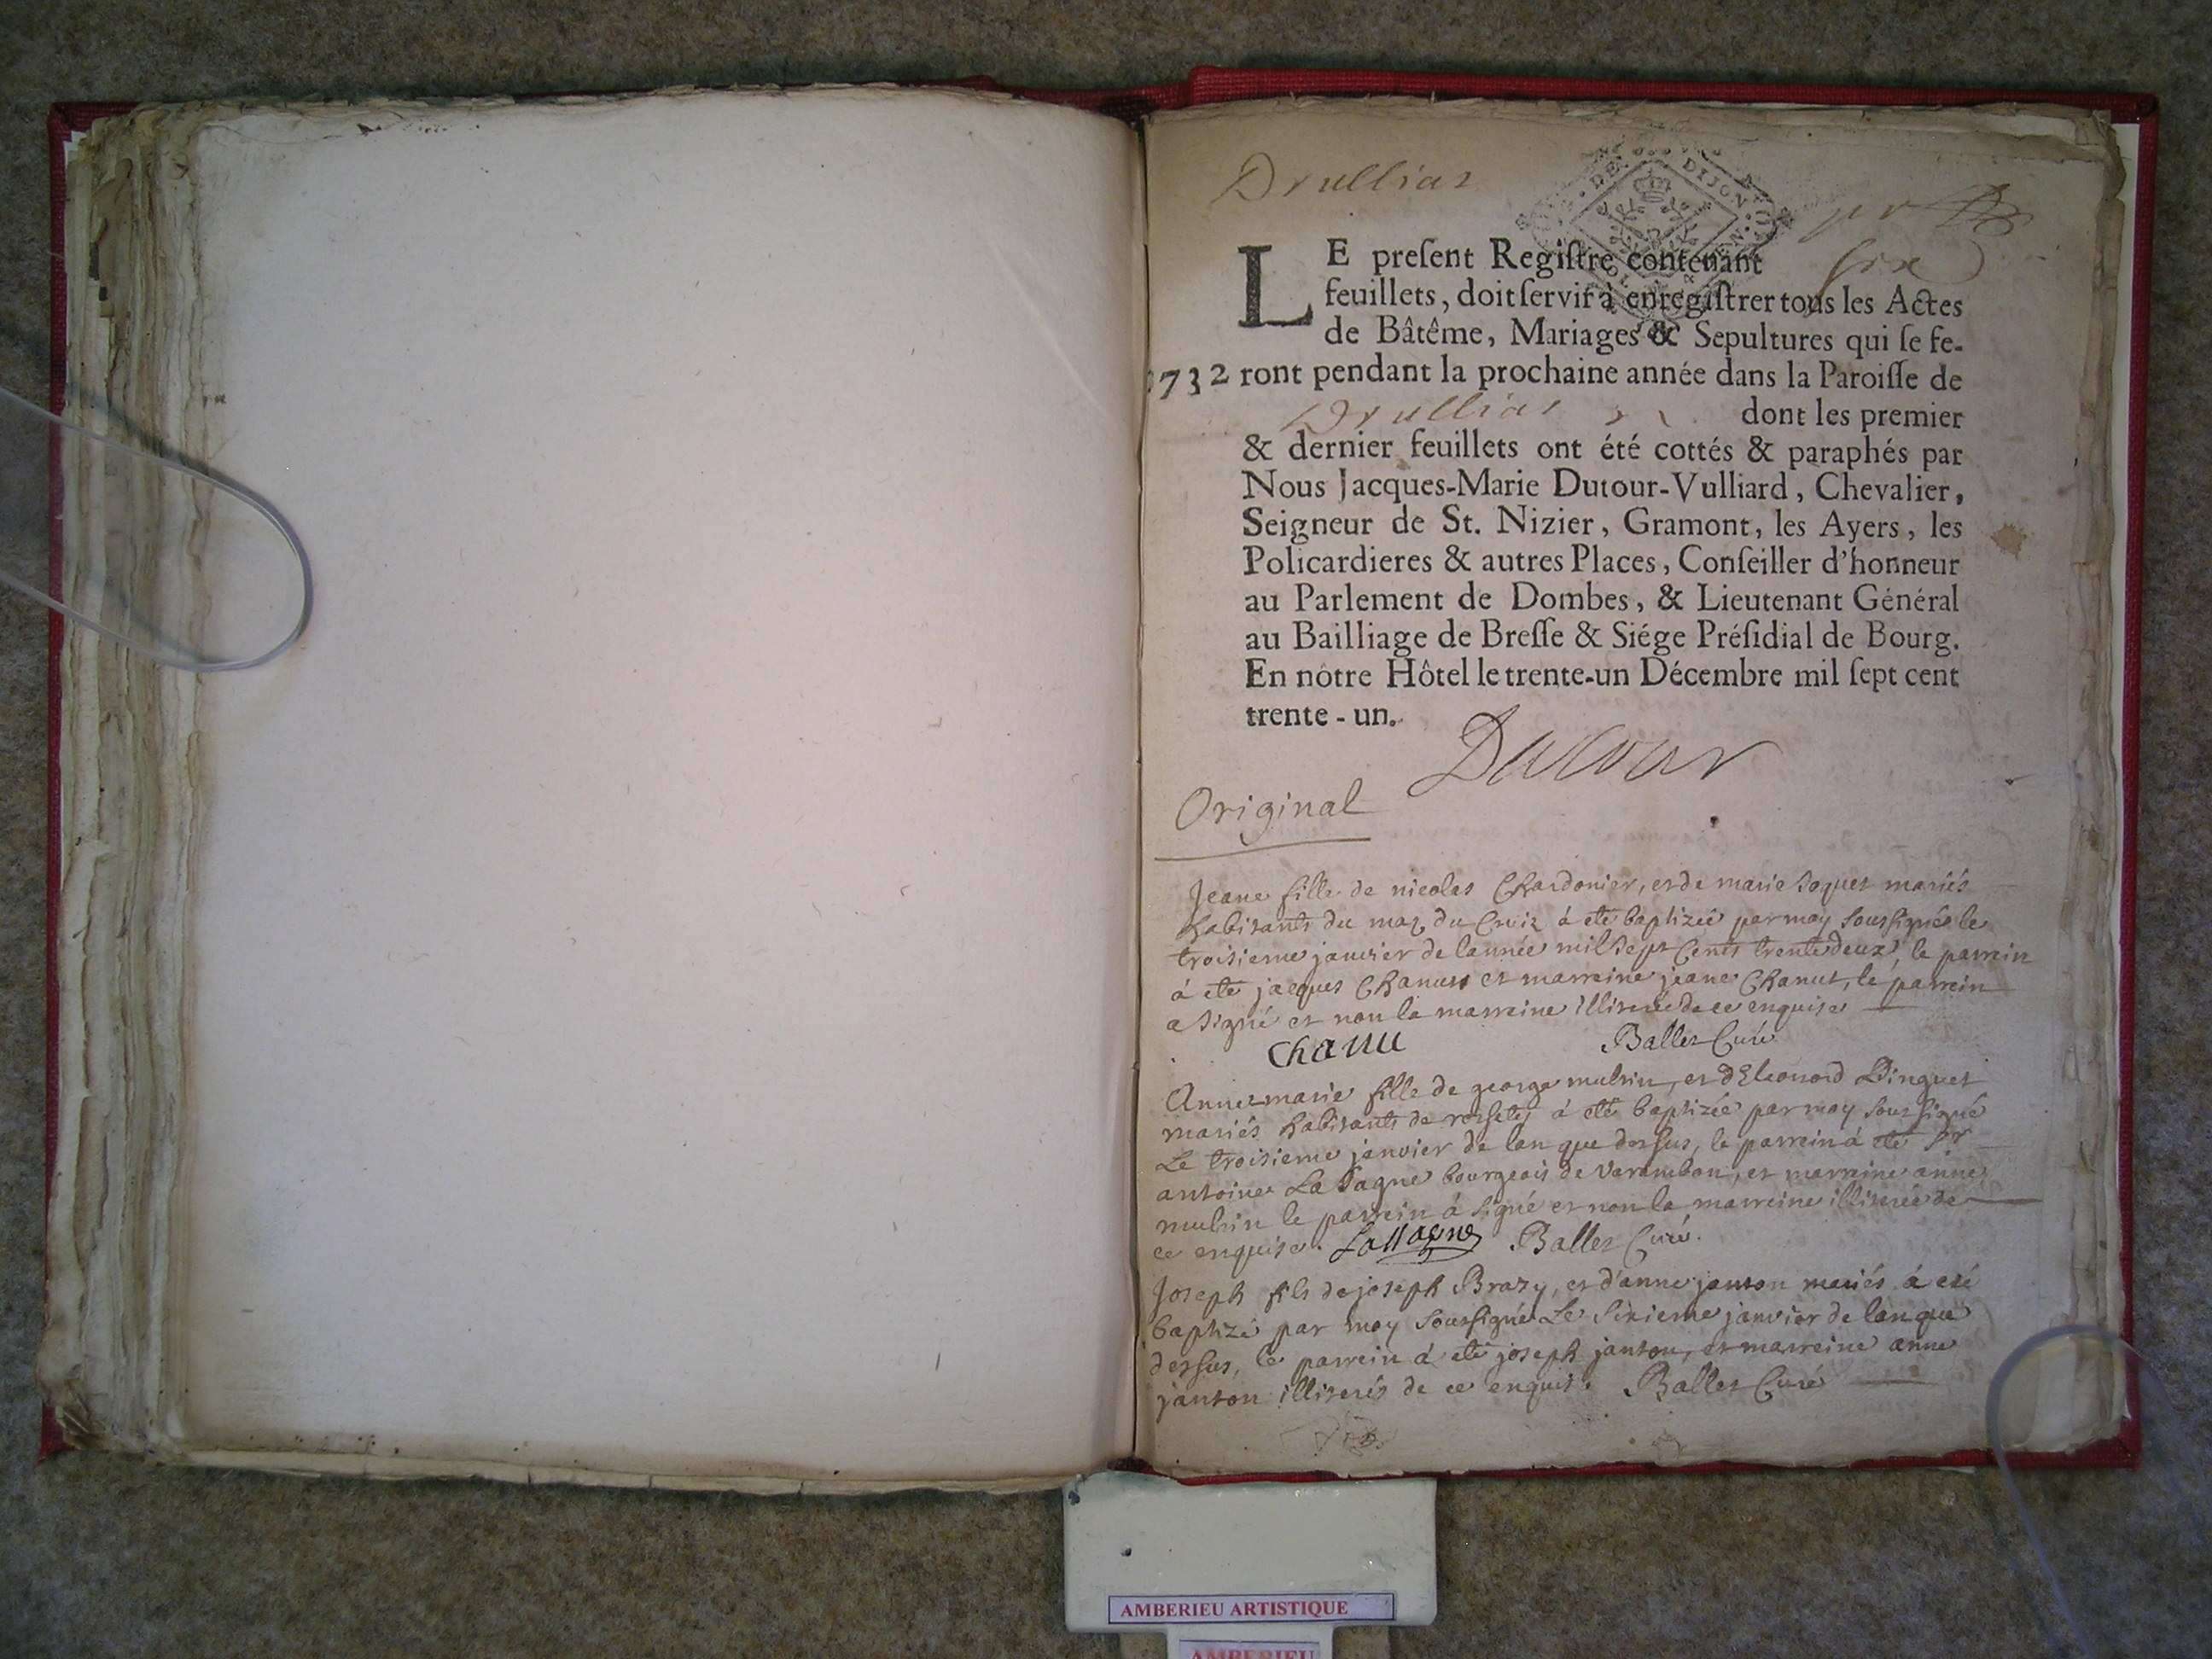 Drullias
DE DIJON
pr
six
LE present Registre contenant
feuillets, doit servir à enregistrer tous les Actes
de Bâtême, Mariages & Sepultures qui se fe-
1732 ront pendant la prochaine année dans la Paroisse de
Drullias dont les premier
& dernier feuillets ont été cottés & paraphés par
Nous Jacques-Marie Dutour-Vulliard, Chevalier,
Seigneur de St. Nizier, Gramont, les Ayers, les
Policardieres & autres Places, Conseiller d'honneur
au Parlement de Dombes, & Lieutenant Général
au Bailliage de Bresse & Siége Présidial de Bourg.
En nôtre Hôtel le trente-un Décembre mil sept cent
trente-un.
Dutour
Original
Jeane fille de nicolas Chardonier, et de marie soquet mariés
habitants du maz du Cruiz à eté baptizée par moy soussigné le
troisieme janvier de lannée mil sept Cents trente deux, le parrein
à eté jacques Chanut et marreine jeane Chanut, le parrein
a signé et non la marreine illiterée de ce enquise
Chanu Ballet Curé
Anne marie fille de george mulrin, et dEleonord Dinguet
mariés habitants de rossetty à eté baptizée par moy soussigné
Le troisieme janvier de lan que dessus, le parrein à eté sr
antoine La Sagne bourgeois de Varambon, et marreine anne
mulrin le parrein à signé et non la marreine illiterée de
ce enquise. Lassagne Ballet Curé.
Joseph fils de joseph Brazy, et d'anne janton mariés à eté
baptizé par moy soussigné Le sixieme janvier de lan que
dessus, le parrein à eté joseph janton, et marreine anne
janton illiterés de ce enquis. Ballet Curé
AMBERIEU ARTISTIQUE
AMBERIEU